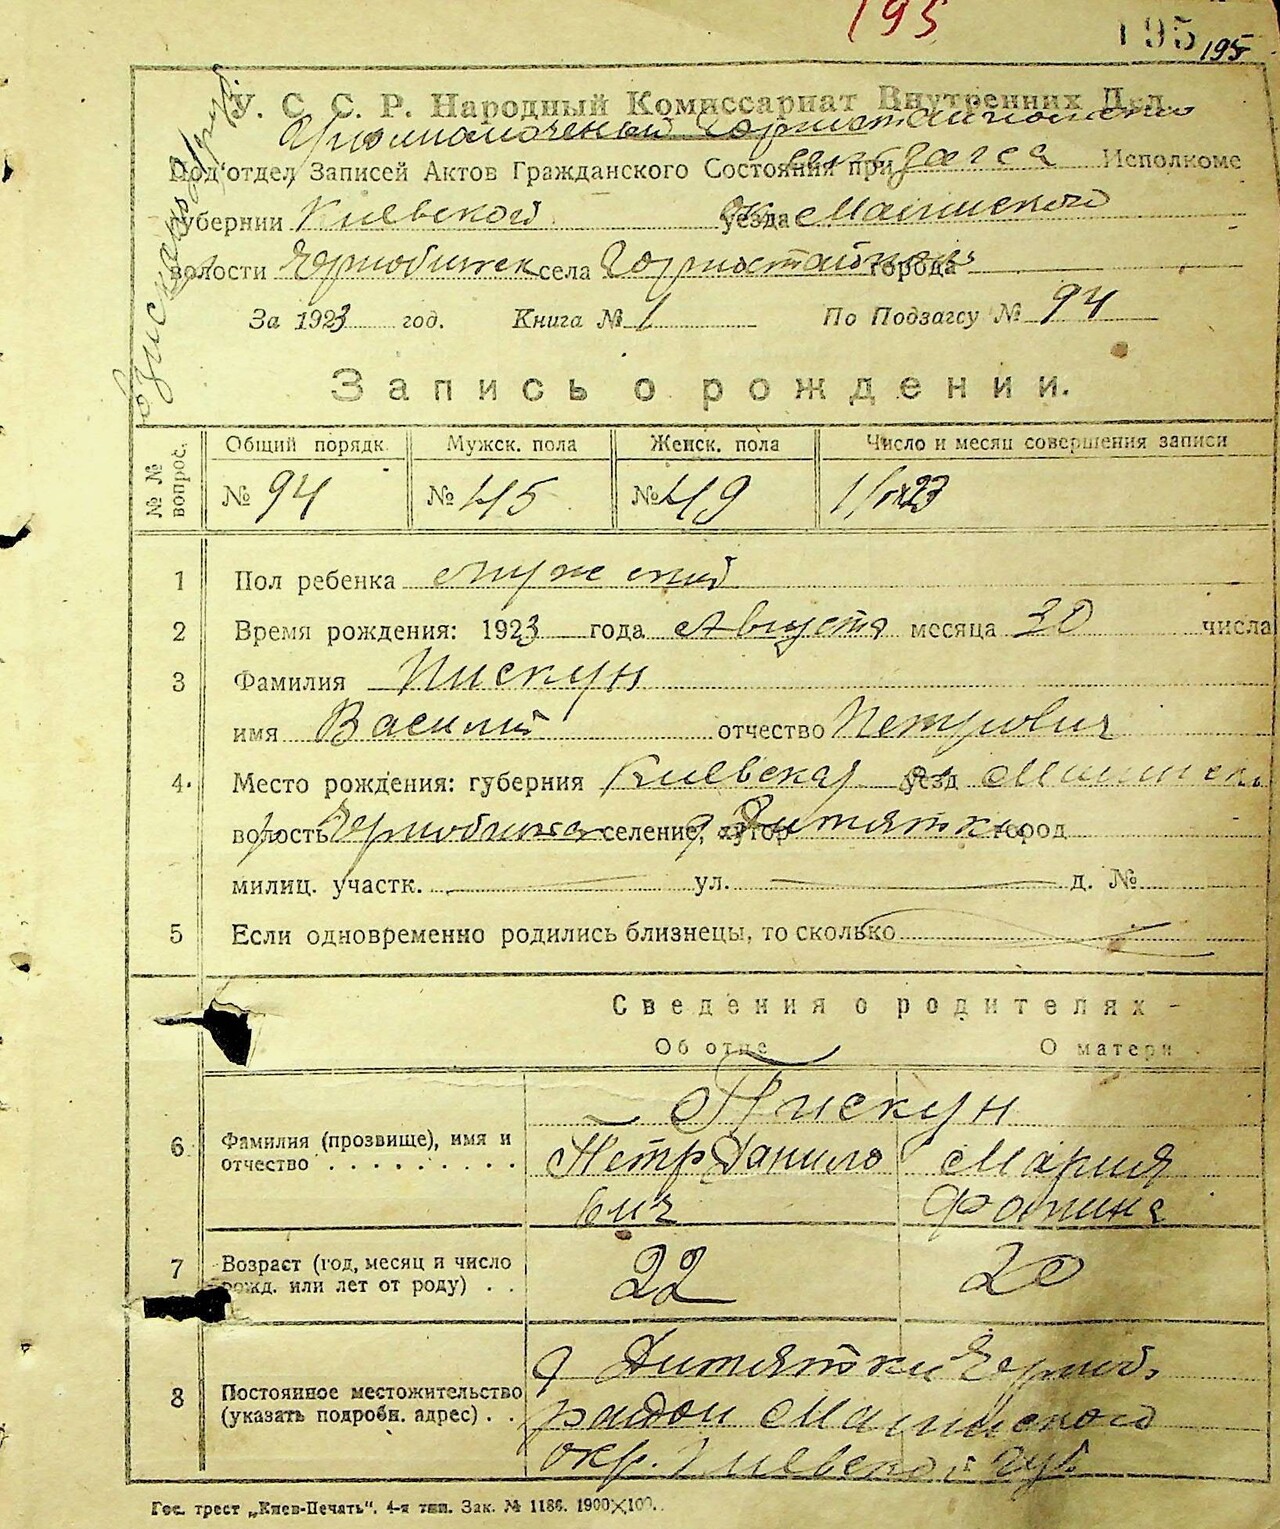 195
195 195
У. С. С. Р. Народный Комиссариат Внутренних Дел.
Под'отдел Записей Актов Гражданского Состояния при Исполкоме
губернии Киевской уезда Малинского
волости села города
За 1923 год. Книга № 1 По Подзагсу № 94
Запись о рождении.
№ № вопрос. Общий порядк. Мужск. пола Женск. пола Число и месяц совершения записи
№ 94 № 45 № 49 1/IX 23
1 Пол ребенка мужской
2 Время рождения: 1923 года Августа месяца 30 числа
3 Фамилия Пискун
имя Василий отчество Петрович
4. Место рождения: губерния Киевская уезд
волость селение, хутор Дитятки город
милиц. участк. ул. д. №
5 Если одновременно родились близнецы, то сколько
Сведения о родителях
Об отце О матери
Пискун
6 Фамилия (прозвище), имя и Петр Данило Мария
отчество . . . . . . . . . . вич
7 Возраст (год, месяц и число 22 20
рожд. или лет от роду) . .
д Дитятки
8 Постоянное местожительство Малинского
(указать подробн. адрес) . .
окр. Киевской губ
Гос. трест „Киев-Печать“. 4-я тип. Зак. № 1186. 1900×100.